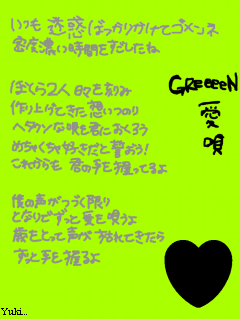 いつも 迷惑ばっかりかけてゴメンネ
密度濃い時間をすごしたね
ぼくら2人 日々を刻み
作り上げてきた想いつのり
ヘタクソな唄を君におくろう
めちゃくちゃ好きだと誓おう!
これからも 君の手を握ってるよ
僕の声がつづく限り
となりでずっと愛を唄うよ
歳をとって声が枯れてきたら
ずっと手を握るよ
GReeeeN
愛唄
Yuki...